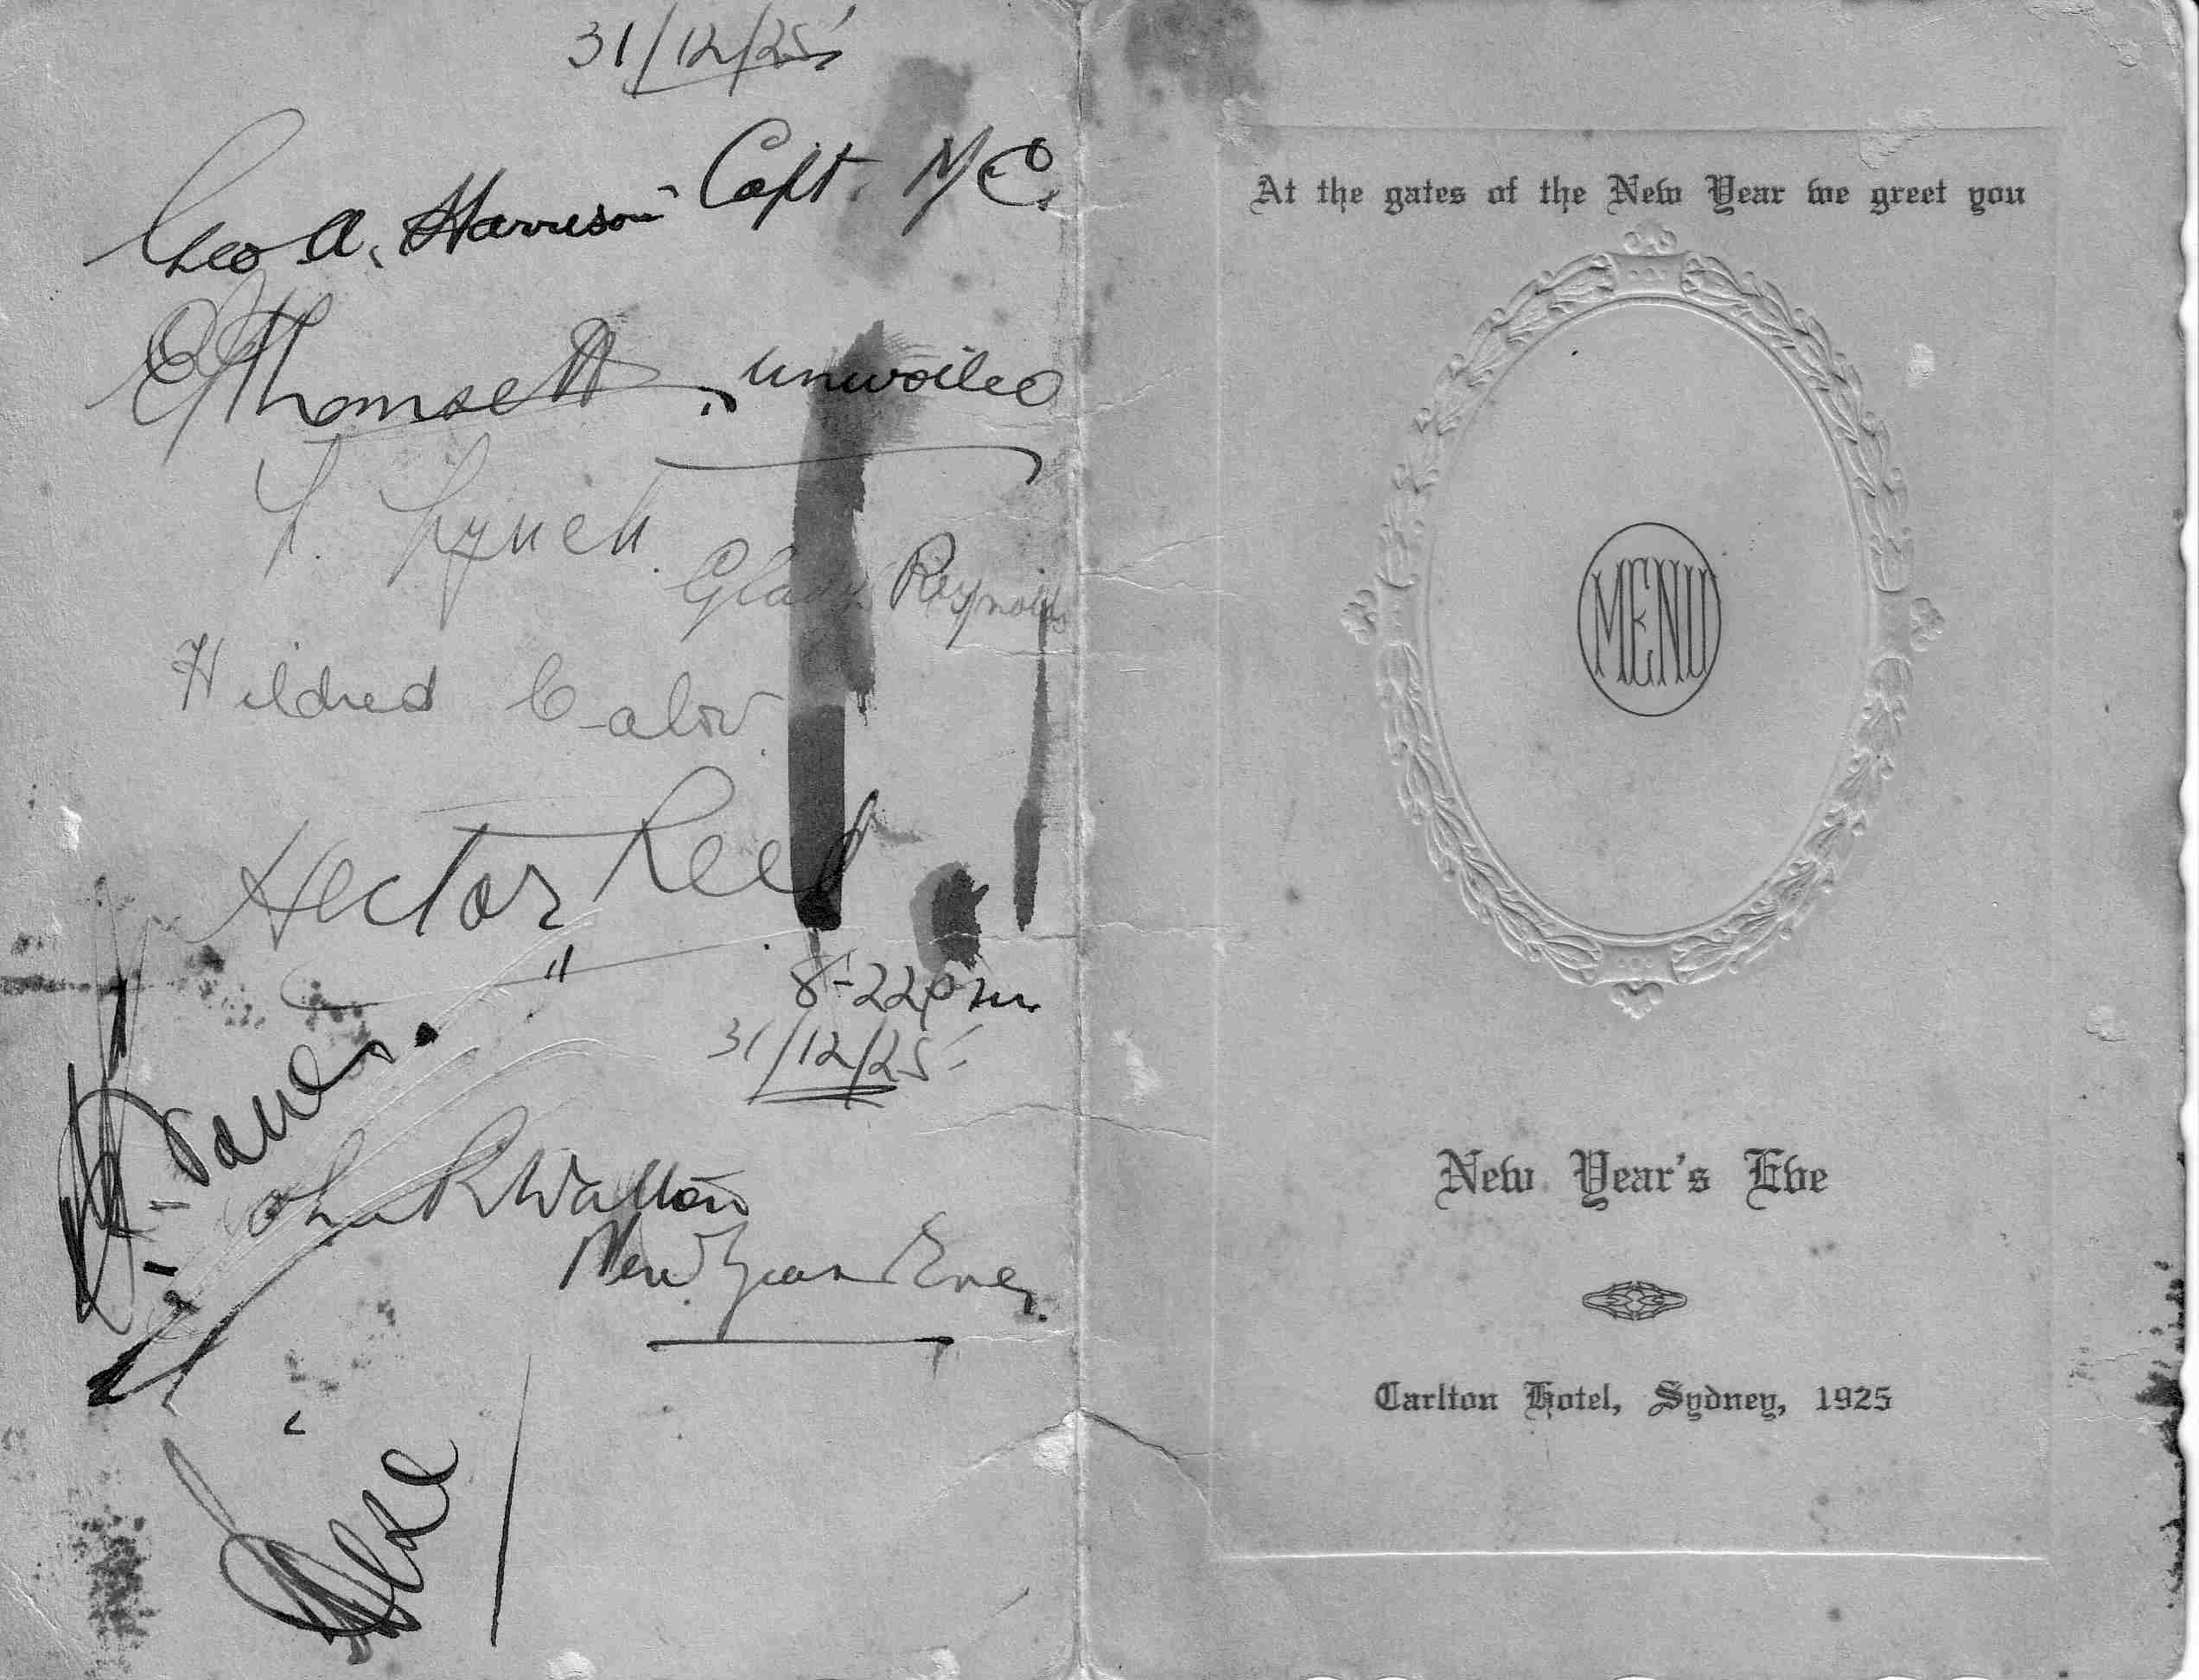 31/12/25
Geo A. Harrison Capt. M.C.
E Thomsett. unvoiled
L. Lynch.
Gladys Reynolds
Hildred
Hector Reed
8-22pm
31/12/25
John R Walton
New Year Eve
At the gates of the New Year we greet you
MENU
New Year's Eve
Carlton Hotel, Sydney, 1925